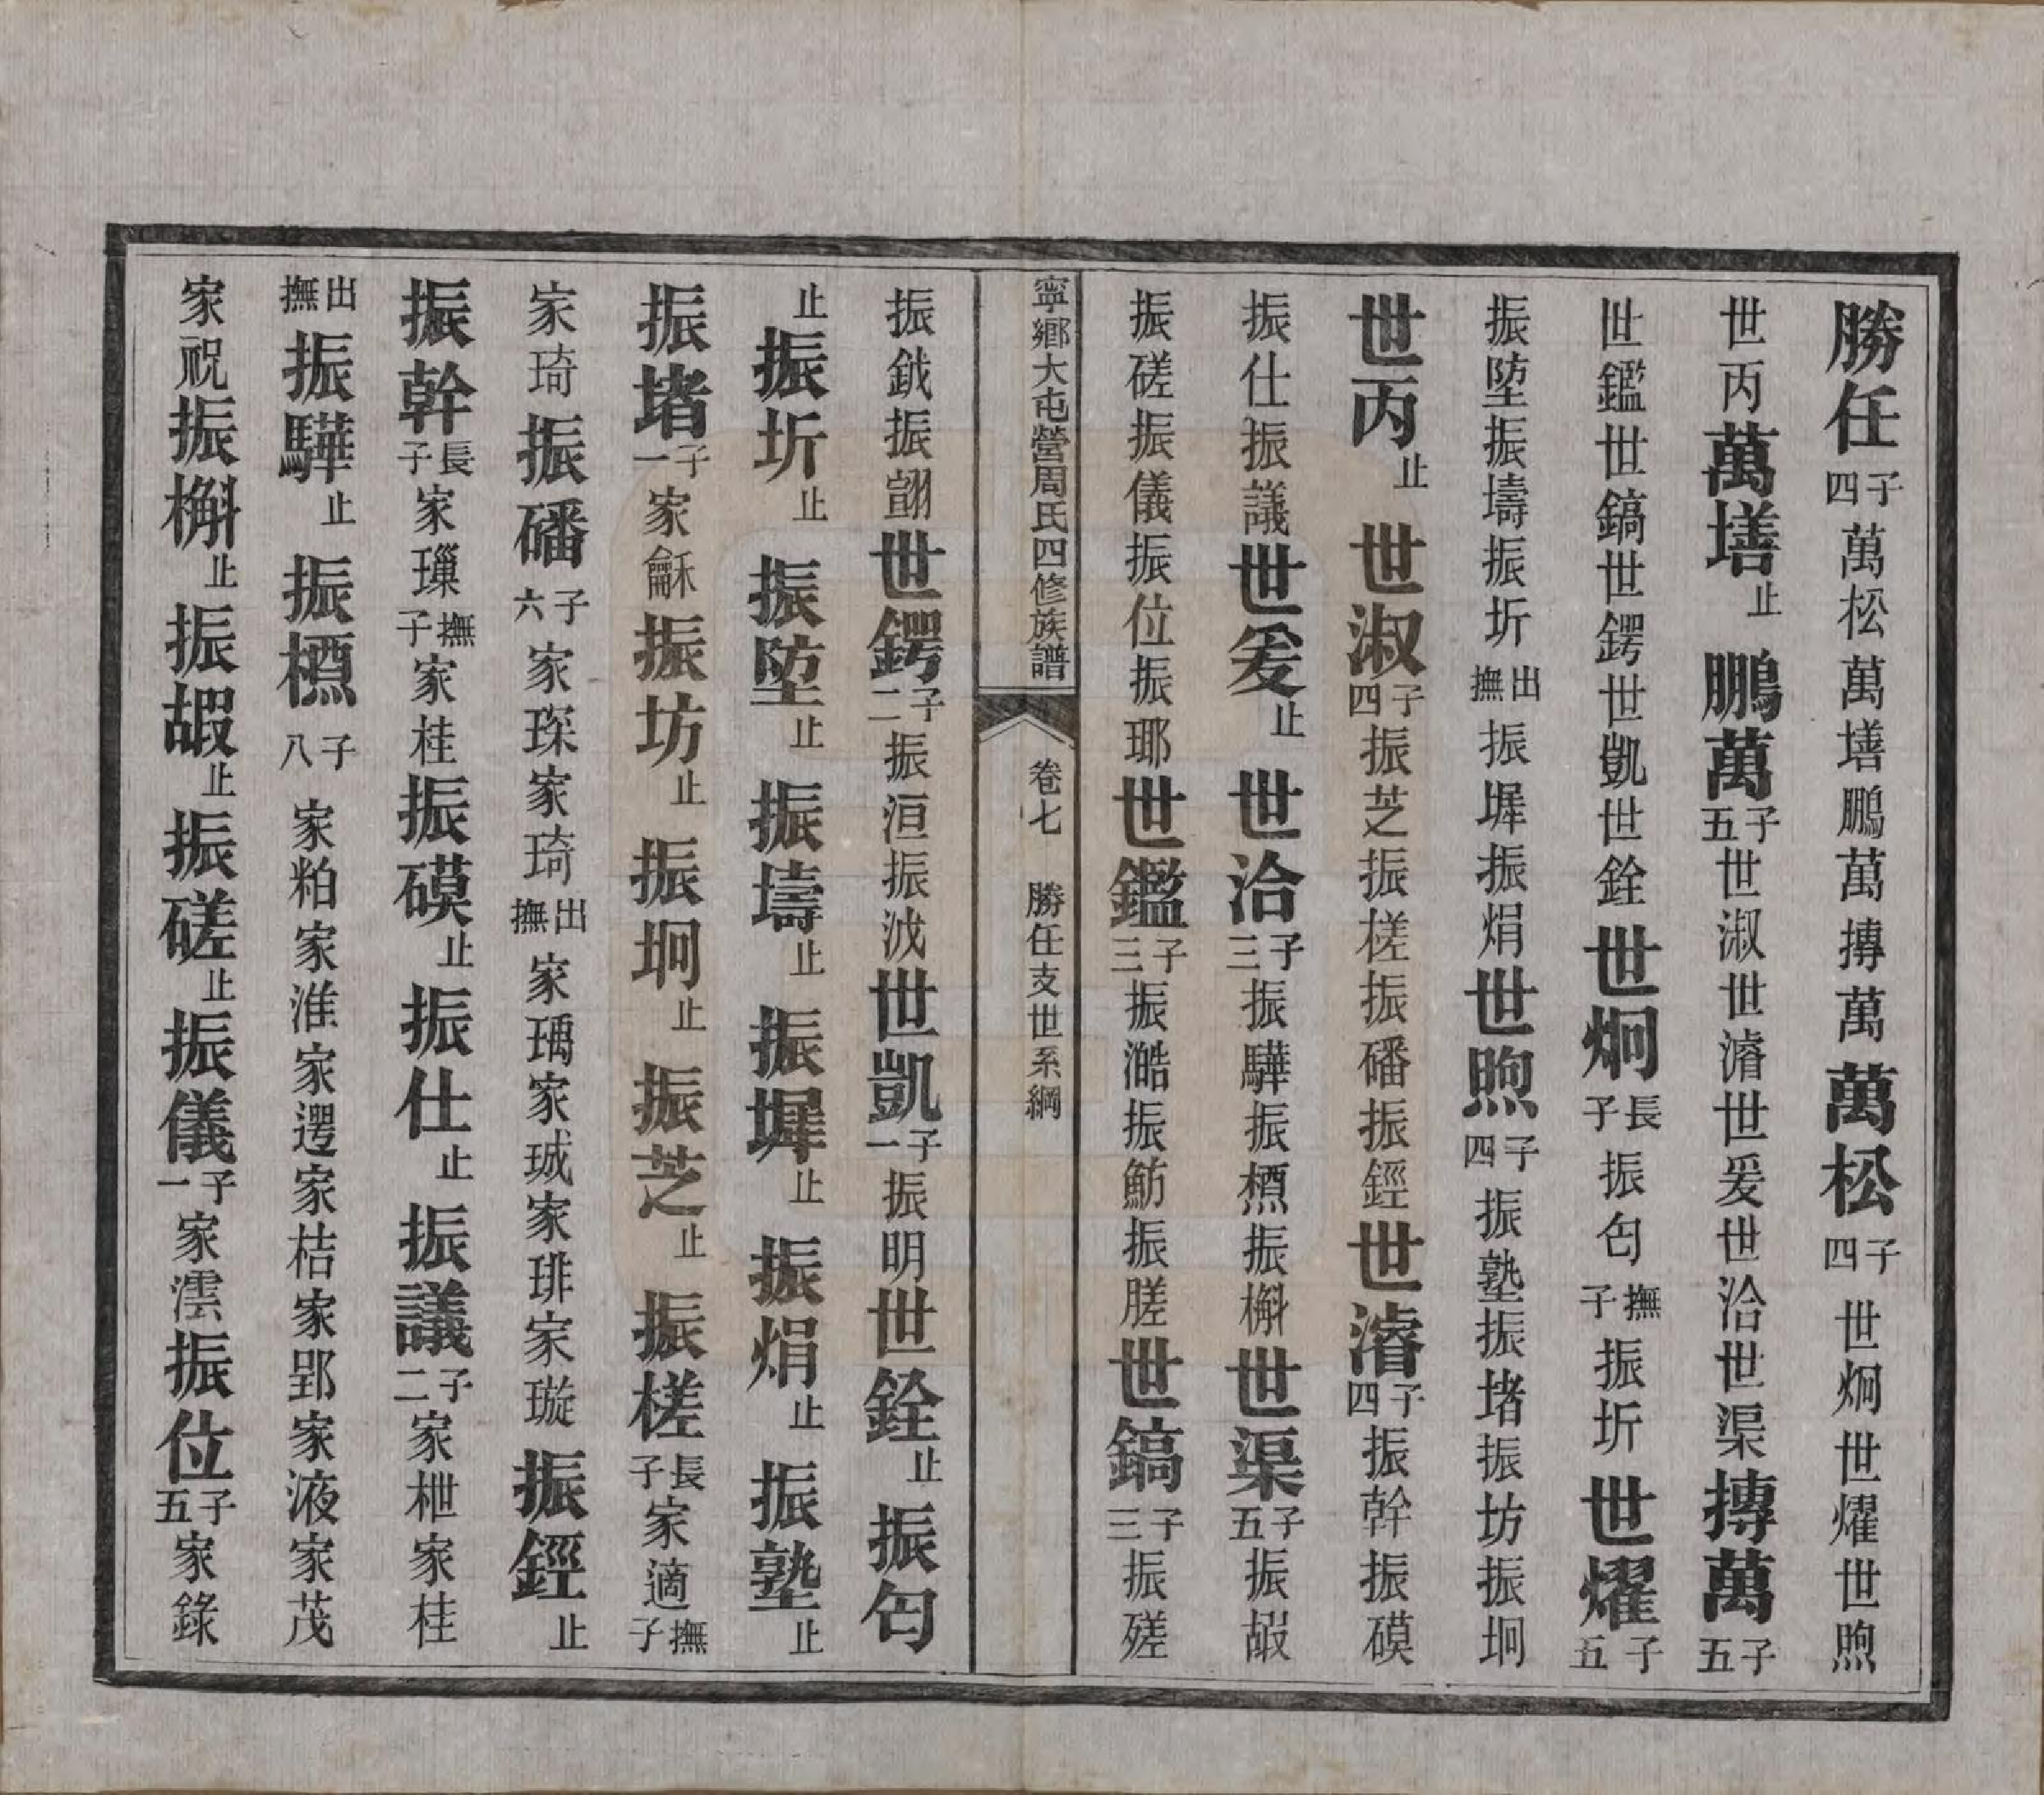 勝任子四萬松萬墡鵬萬摶萬萬松子四世炯世燿世煦
世丙萬墡止鵬萬子五世淑世濬世爰世洽世渠摶萬子五
世鑑世鎬世鍔世凱世銓世炯長子振匄撫子振圻世燿子五
振堃振壔振圻出撫振墀振焆世煦子四振塾振堵振坊振坰
世丙止世淑子四振芝振槎振磻振鏗世濬子四振幹振磺
振仕振議世爰止世洽子三振驊振槱振槲世渠子五振嘏
振磋振儀振位振瑘世鑑子三振澔振魴振䑘世鎬子三振
寧鄉大屯營周氏四修族譜 卷七 勝任支世系綱
振鉞振翧世鍔子二振洹振泧世凱子一振明世銓止振匄
止振圻止振堃止振壔止振墀止振焆止振塾止
振堵子一家龢振坊止振坰止振芝止振槎長子家適撫子
家琦振磻子六家琛家琦出撫家瑀家珹家琲家璇振鏗止
振幹長子家璅撫子家桂振磺止振仕止振議子二家枻家桂
出撫振驊止振槱子八家粕家淮家遌家桔家郢家液家茂
家祝振槲止振嘏止振磋止振儀子一家澐振位子五家錄